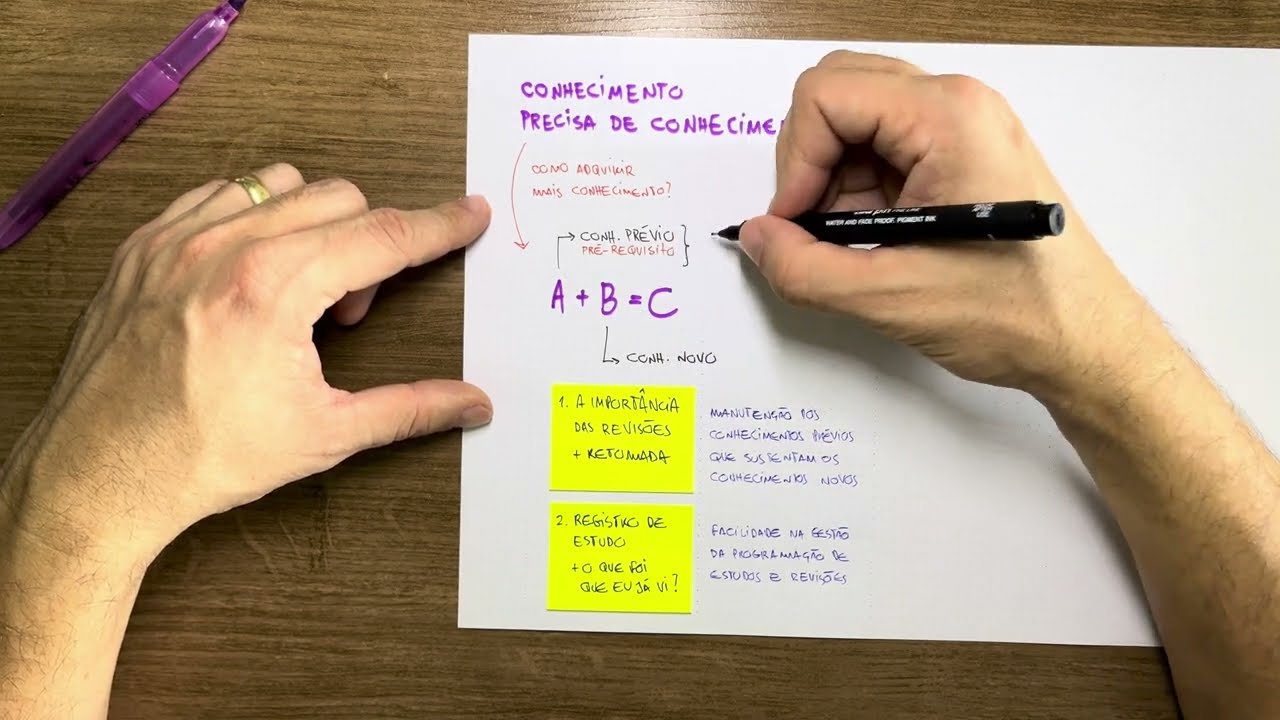 CONHECIMENTO
PRECISA DE CONHECIME
COMO ADQUIRIR
MAIS CONHECIMENTO?
CONH. PRÉVIO
PRÉ-REQUISITO
A + B = C
CONH. NOVO
1. A IMPORTÂNCIA
DAS REVISÕES
+ RETOMADA
MANUTENÇÃO DOS
CONHECIMENTOS PRÉVIOS
QUE SUSTENTAM OS
CONHECIMENTOS NOVOS
2. REGISTRO DE
ESTUDO
+ O QUE FOI
QUE EU JÁ VI?
FACILIDADE NA GESTÃO
DA PROGRAMAÇÃO DE
ESTUDOS E REVISÕES
WATER AND FADE PROOF, PIGMENT INK